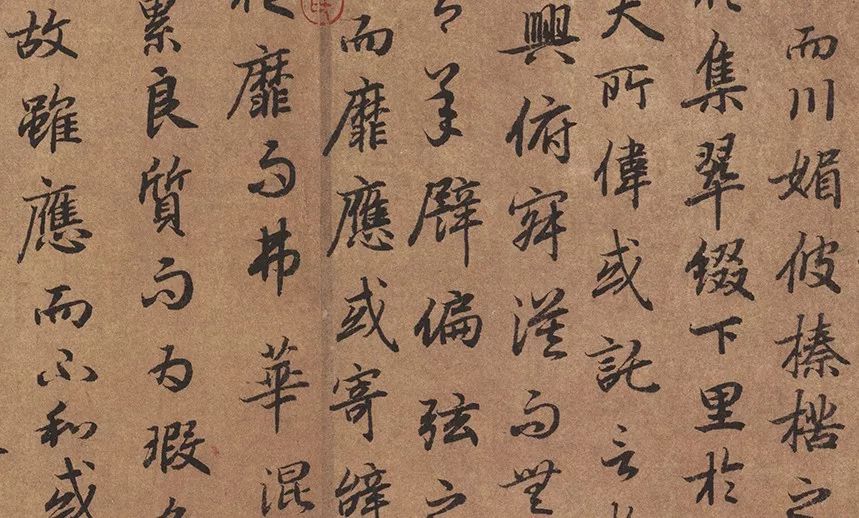 而川媚彼榛楛之
集翠綴下里於
夫所偉或託言
興俯寂漠而無
承譬偏弦之
而靡應或寄辭
靡而弗華混
累良質而為瑕
故雖應而不和或